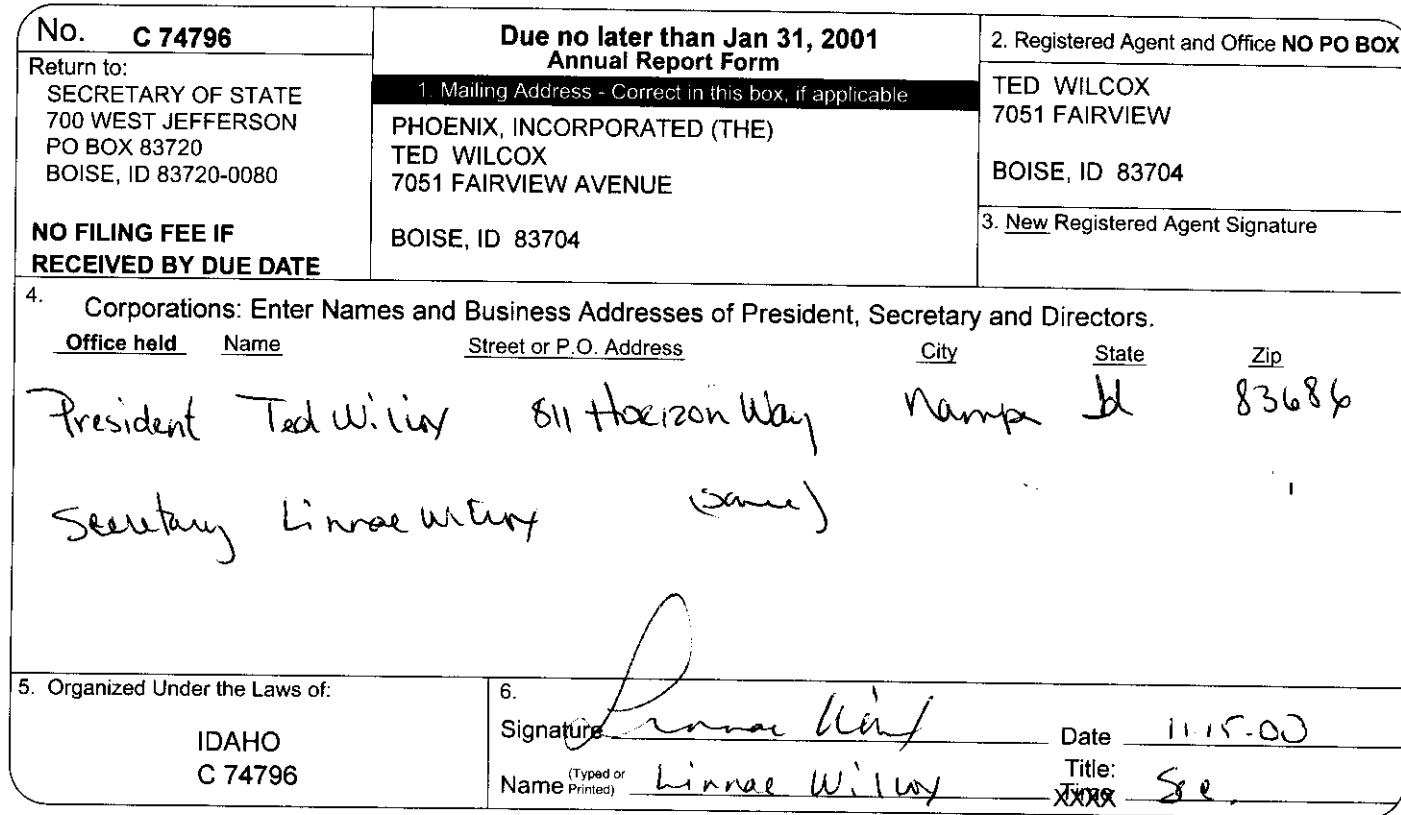 No. C 74796
Return to:
SECRETARY OF STATE
700 WEST JEFFERSON
PO BOX 83720
BOISE, ID 83720-0080
NO FILING FEE IF
RECEIVED BY DUE DATE
Due no later than Jan 31, 2001
Annual Report Form
1. Mailing Address - Correct in this box, if applicable
PHOENIX, INCORPORATED (THE)
TED WILCOX
7051 FAIRVIEW AVENUE
BOISE, ID 83704
2. Registered Agent and Office NO PO BOX
TED WILCOX
7051 FAIRVIEW
BOISE, ID 83704
3. New Registered Agent Signature
4. Corporations: Enter Names and Business Addresses of President, Secretary and Directors.
Office held Name Street or P.O. Address City State Zip
President Ted Wilcox 811 Horizon Way Nampa Id 83686
Secretary Linnae Wilcox (same)
5. Organized Under the Laws of:
IDAHO
C 74796
6.
Signature Linnae Wilcox Date 11-15-00
Name (Typed or Printed) Linnae Wilcox Title: Sec.